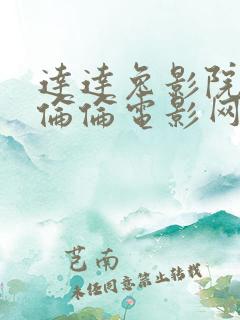 達達兔影院
倫倫電影网
芭南
未经同意禁止转载